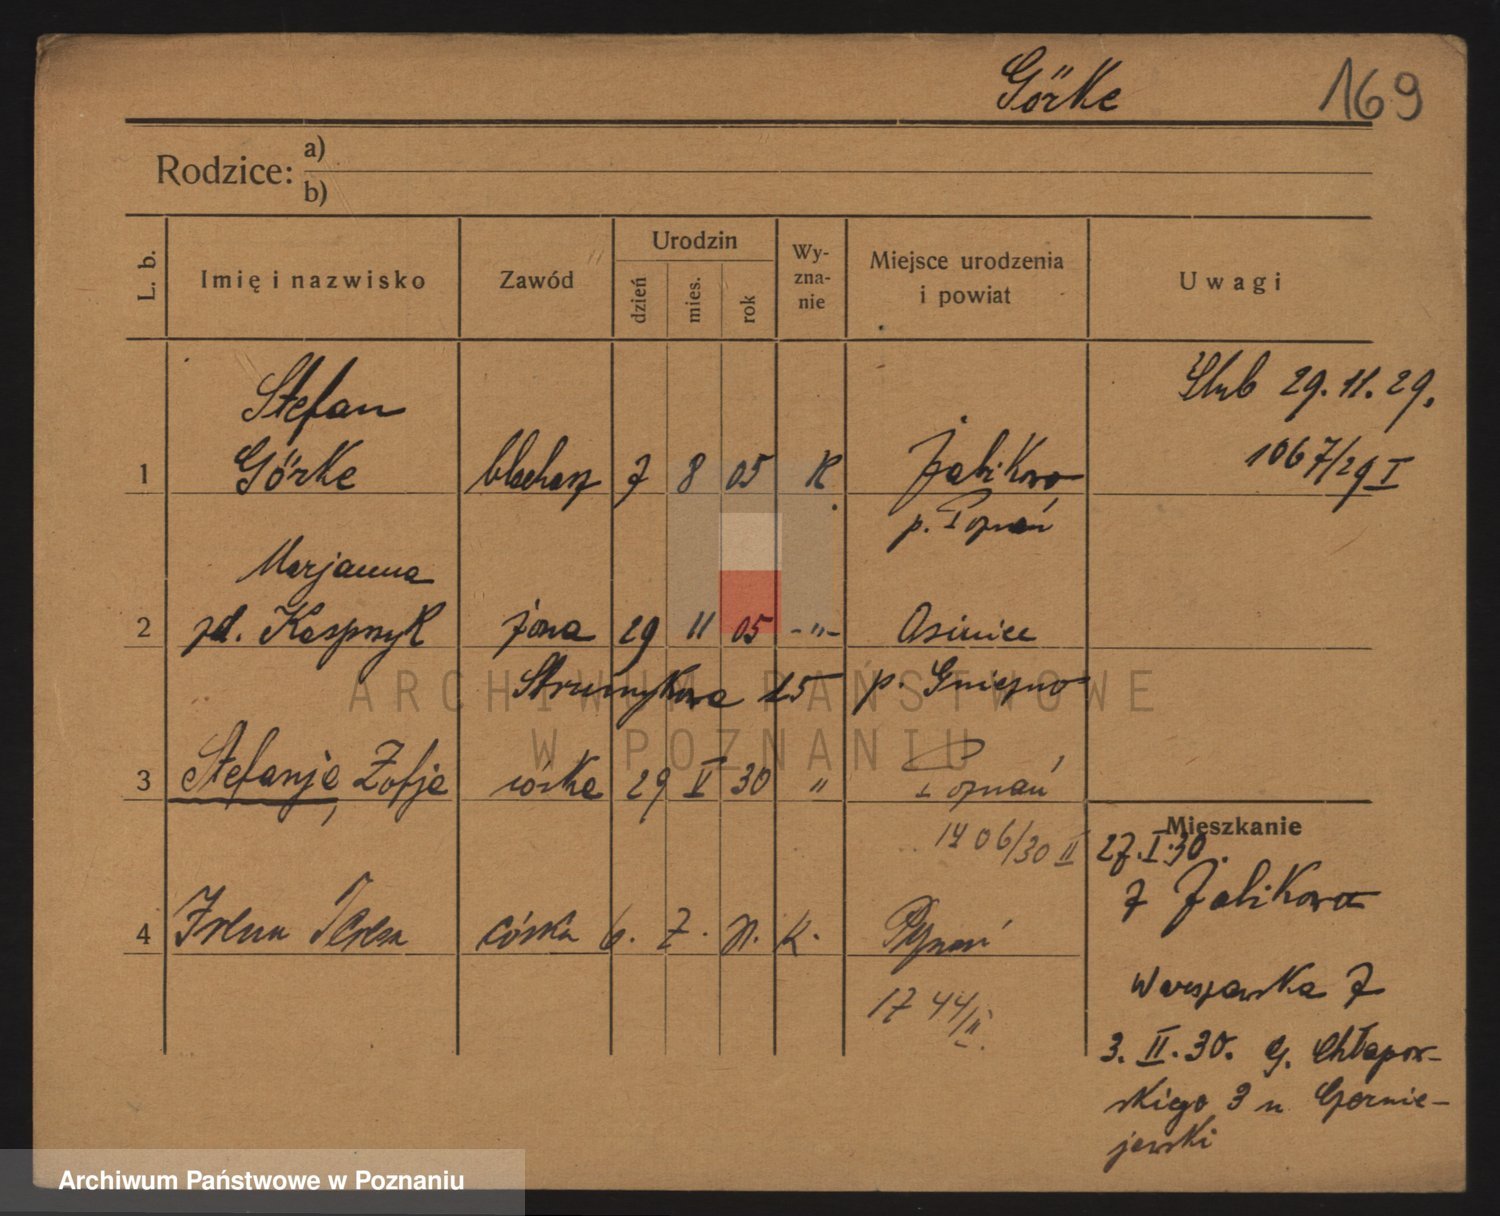 Görke 169
Rodzice: a)
b)
L. b.
Imię i nazwisko
Zawód
Urodzin
dzień
mies.
rok
Wy-
zna-
nie
Miejsce urodzenia
i powiat
Uwagi
Stefan
1 Görke blacharz 7 8 05 K. Żabikowo
p. Poznań
Ślub 29.11.29.
1067/29 I
Marjanna
2 zd. Kasprzyk żona 29 11 05 -"- Osiniec
Strumykowa 15 p. Gniezno
3 Stefanja, Zofja córka 29 II 30 " Poznań
1406/30 II
Mieszkanie
27.I.30.
z Żabikowa
4 Irena Teresa córka 6. 7. K. Poznań
1744/II.
Warszawska 7
3. II. 30. G. Chłapow-
skiego 3 u Czernie-
jewski
ARCHIWUM PAŃSTWOWE
W POZNANIU
Archiwum Państwowe w Poznaniu